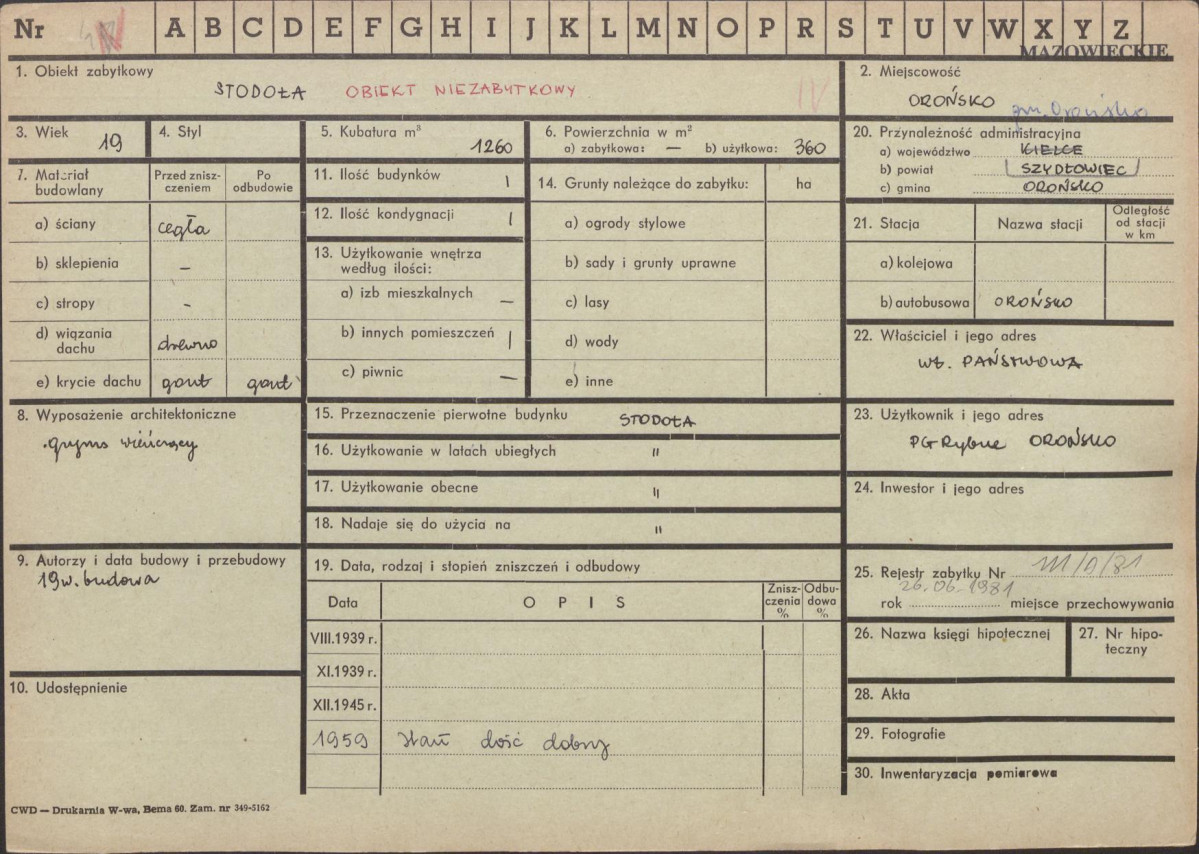 Nr A B C D E F G H I J K L M N O P R S T U V W X Y Z
MAZOWIECKIE
1. Obiekt zabytkowy
STODOŁA OBIEKT NIEZABYTKOWY IV
2. Miejscowość
OROŃSKO gm. Orońsko
3. Wiek 19
4. Styl
5. Kubatura m³ 1260
6. Powierzchnia w m²
a) zabytkowa: — b) użytkowa: 360
20. Przynależność administracyjna
a) województwo KIELCE
b) powiat SZYDŁOWIEC
c) gmina OROŃSKO
7. Materiał budowlany
Przed zniszczeniem
Po odbudowie
a) ściany cegła
b) sklepienia —
c) stropy -
d) wiązania dachu drewno
e) krycie dachu gont gont
11. Ilość budynków 1
12. Ilość kondygnacji 1
13. Użytkowanie wnętrza
według ilości:
a) izb mieszkalnych —
b) innych pomieszczeń 1
c) piwnic —
14. Grunty należące do zabytku: ha
a) ogrody stylowe
b) sady i grunty uprawne
c) lasy
d) wody
e) inne
21. Stacja
Nazwa stacji
Odległość
od stacji
w km
a) kolejowa
b) autobusowa OROŃSKO
22. Właściciel i jego adres
wł. PAŃSTWOWA
8. Wyposażenie architektoniczne
gzyms wieńczący
15. Przeznaczenie pierwotne budynku STODOŁA
16. Użytkowanie w latach ubiegłych "
17. Użytkowanie obecne "
18. Nadaje się do użycia na "
23. Użytkownik i jego adres
PGRybne OROŃSKO
24. Inwestor i jego adres
9. Autorzy i data budowy i przebudowy
19 w. budowa
10. Udostępnienie
19. Data, rodzaj i stopień zniszczeń i odbudowy
Data OPIS
Znisz-
czenia
%
Odbu-
dowa
%
VIII.1939 r.
XI.1939 r.
XII.1945 r.
1959 stan dość dobry
25. Rejestr zabytku Nr 111/A/81
26.06.1981
rok miejsce przechowywania
26. Nazwa księgi hipotecznej
27. Nr hipo-
teczny
28. Akta
29. Fotografie
30. Inwentaryzacja pomiarowa
CWD — Drukarnia W-wa, Bema 60. Zam. nr 349-5162